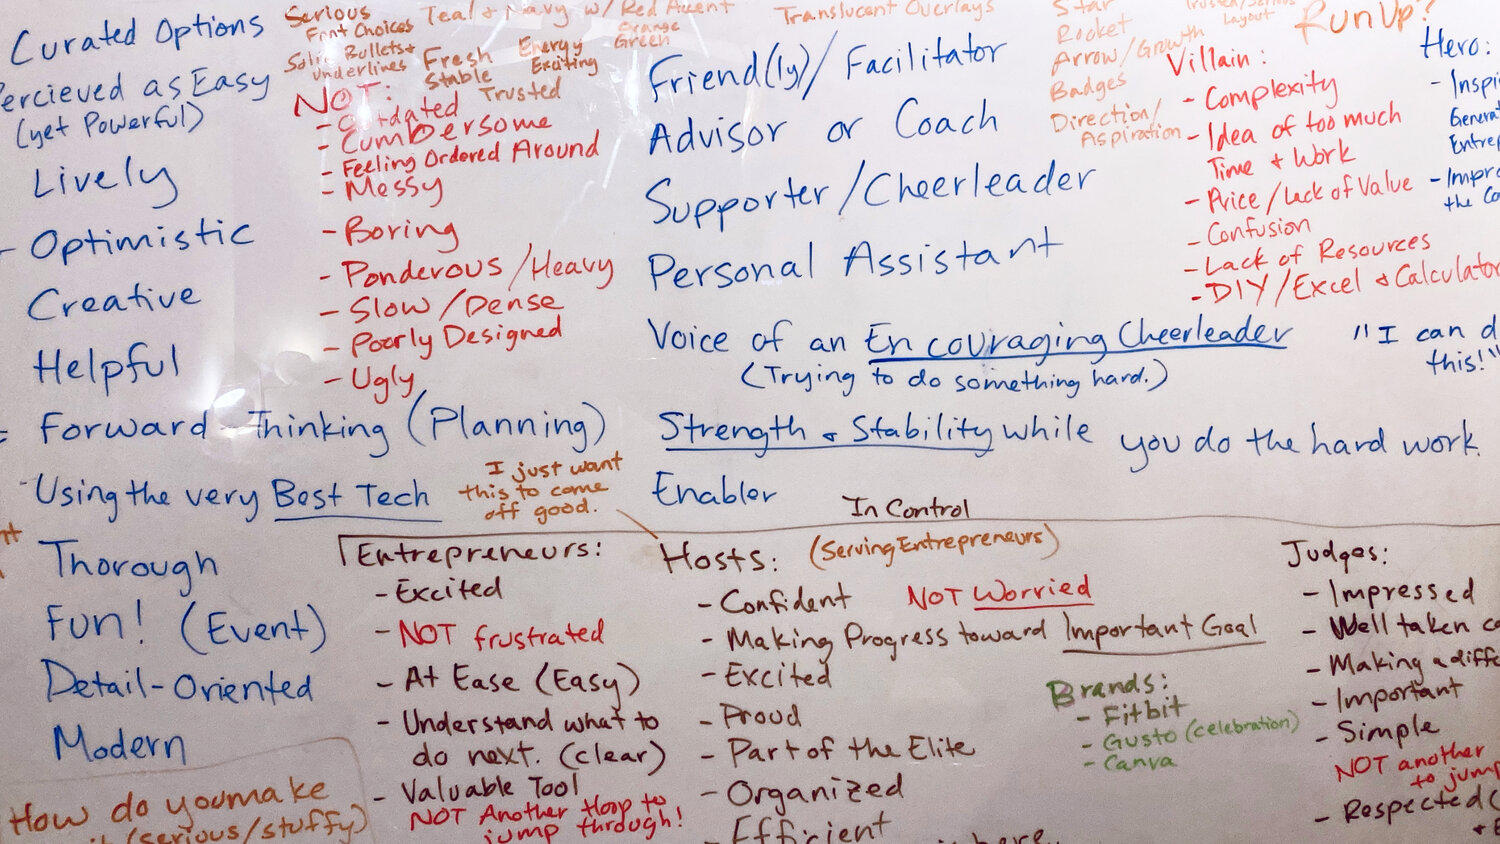 Curated Options
Percieved as Easy
(yet Powerful)
Lively
- Optimistic
Creative
Helpful
Forward-Thinking (Planning)
- Using the very Best Tech
Thorough
Fun! (Event)
Detail-Oriented
Modern
How do you make
(serious/stuffy)
Serious
Font Choices
Solid Bullets +
underlines
Teal + Navy w/ Red Accent
Orange
Green
Fresh
Stable
Trusted
Energy
Exciting
Translucent Overlays
NOT:
- Outdated
- Cumbersome
- Feeling Ordered Around
- Messy
- Boring
- Ponderous/Heavy
- Slow/Dense
- Poorly Designed
- Ugly
I just want
this to come
off good.
Friend(ly)/ Facilitator
Advisor or Coach
Supporter/Cheerleader
Personal Assistant
Voice of an Encouraging Cheerleader
(Trying to do something hard.)
"I can d
this!"
Strength & Stability while you do the hard work.
Enabler
In Control
Star
Rocket
Arrow/Growth
Badges
Direction/
Aspiration
Trusted/Serious
Layout
RunUp?
Villain:
- Complexity
- Idea of too much
Time + Work
- Price/Lack of Value
- Confusion
- Lack of Resources
- DIY/Excel & Calculator
Hero:
- Inspi
Genera
Entrep
- Impro
the Co
Entrepreneurs:
- Excited
- NOT frustrated
- At Ease (Easy)
- Understand what to
do next. (clear)
- Valuable Tool
NOT Another Hoop to
jump through!
Hosts: (Serving Entrepreneurs)
- Confident NOT Worried
- Making Progress toward Important Goal
- Excited
- Proud
- Part of the Elite
- Organized
- Efficient
here.
Brands:
- Fitbit
- Gusto (celebration)
- Canva
Judges:
- Impressed
- Well taken ca
- Making a diffe
- Important
- Simple
NOT another
to jump
- Respected (